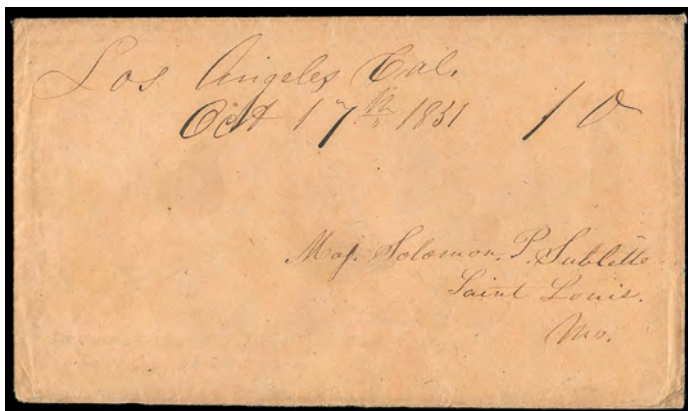 Los Angeles Cal.
Oct 17th 1851 10
Maj. Solomon. P. Sublette
Saint Louis.
Mo.